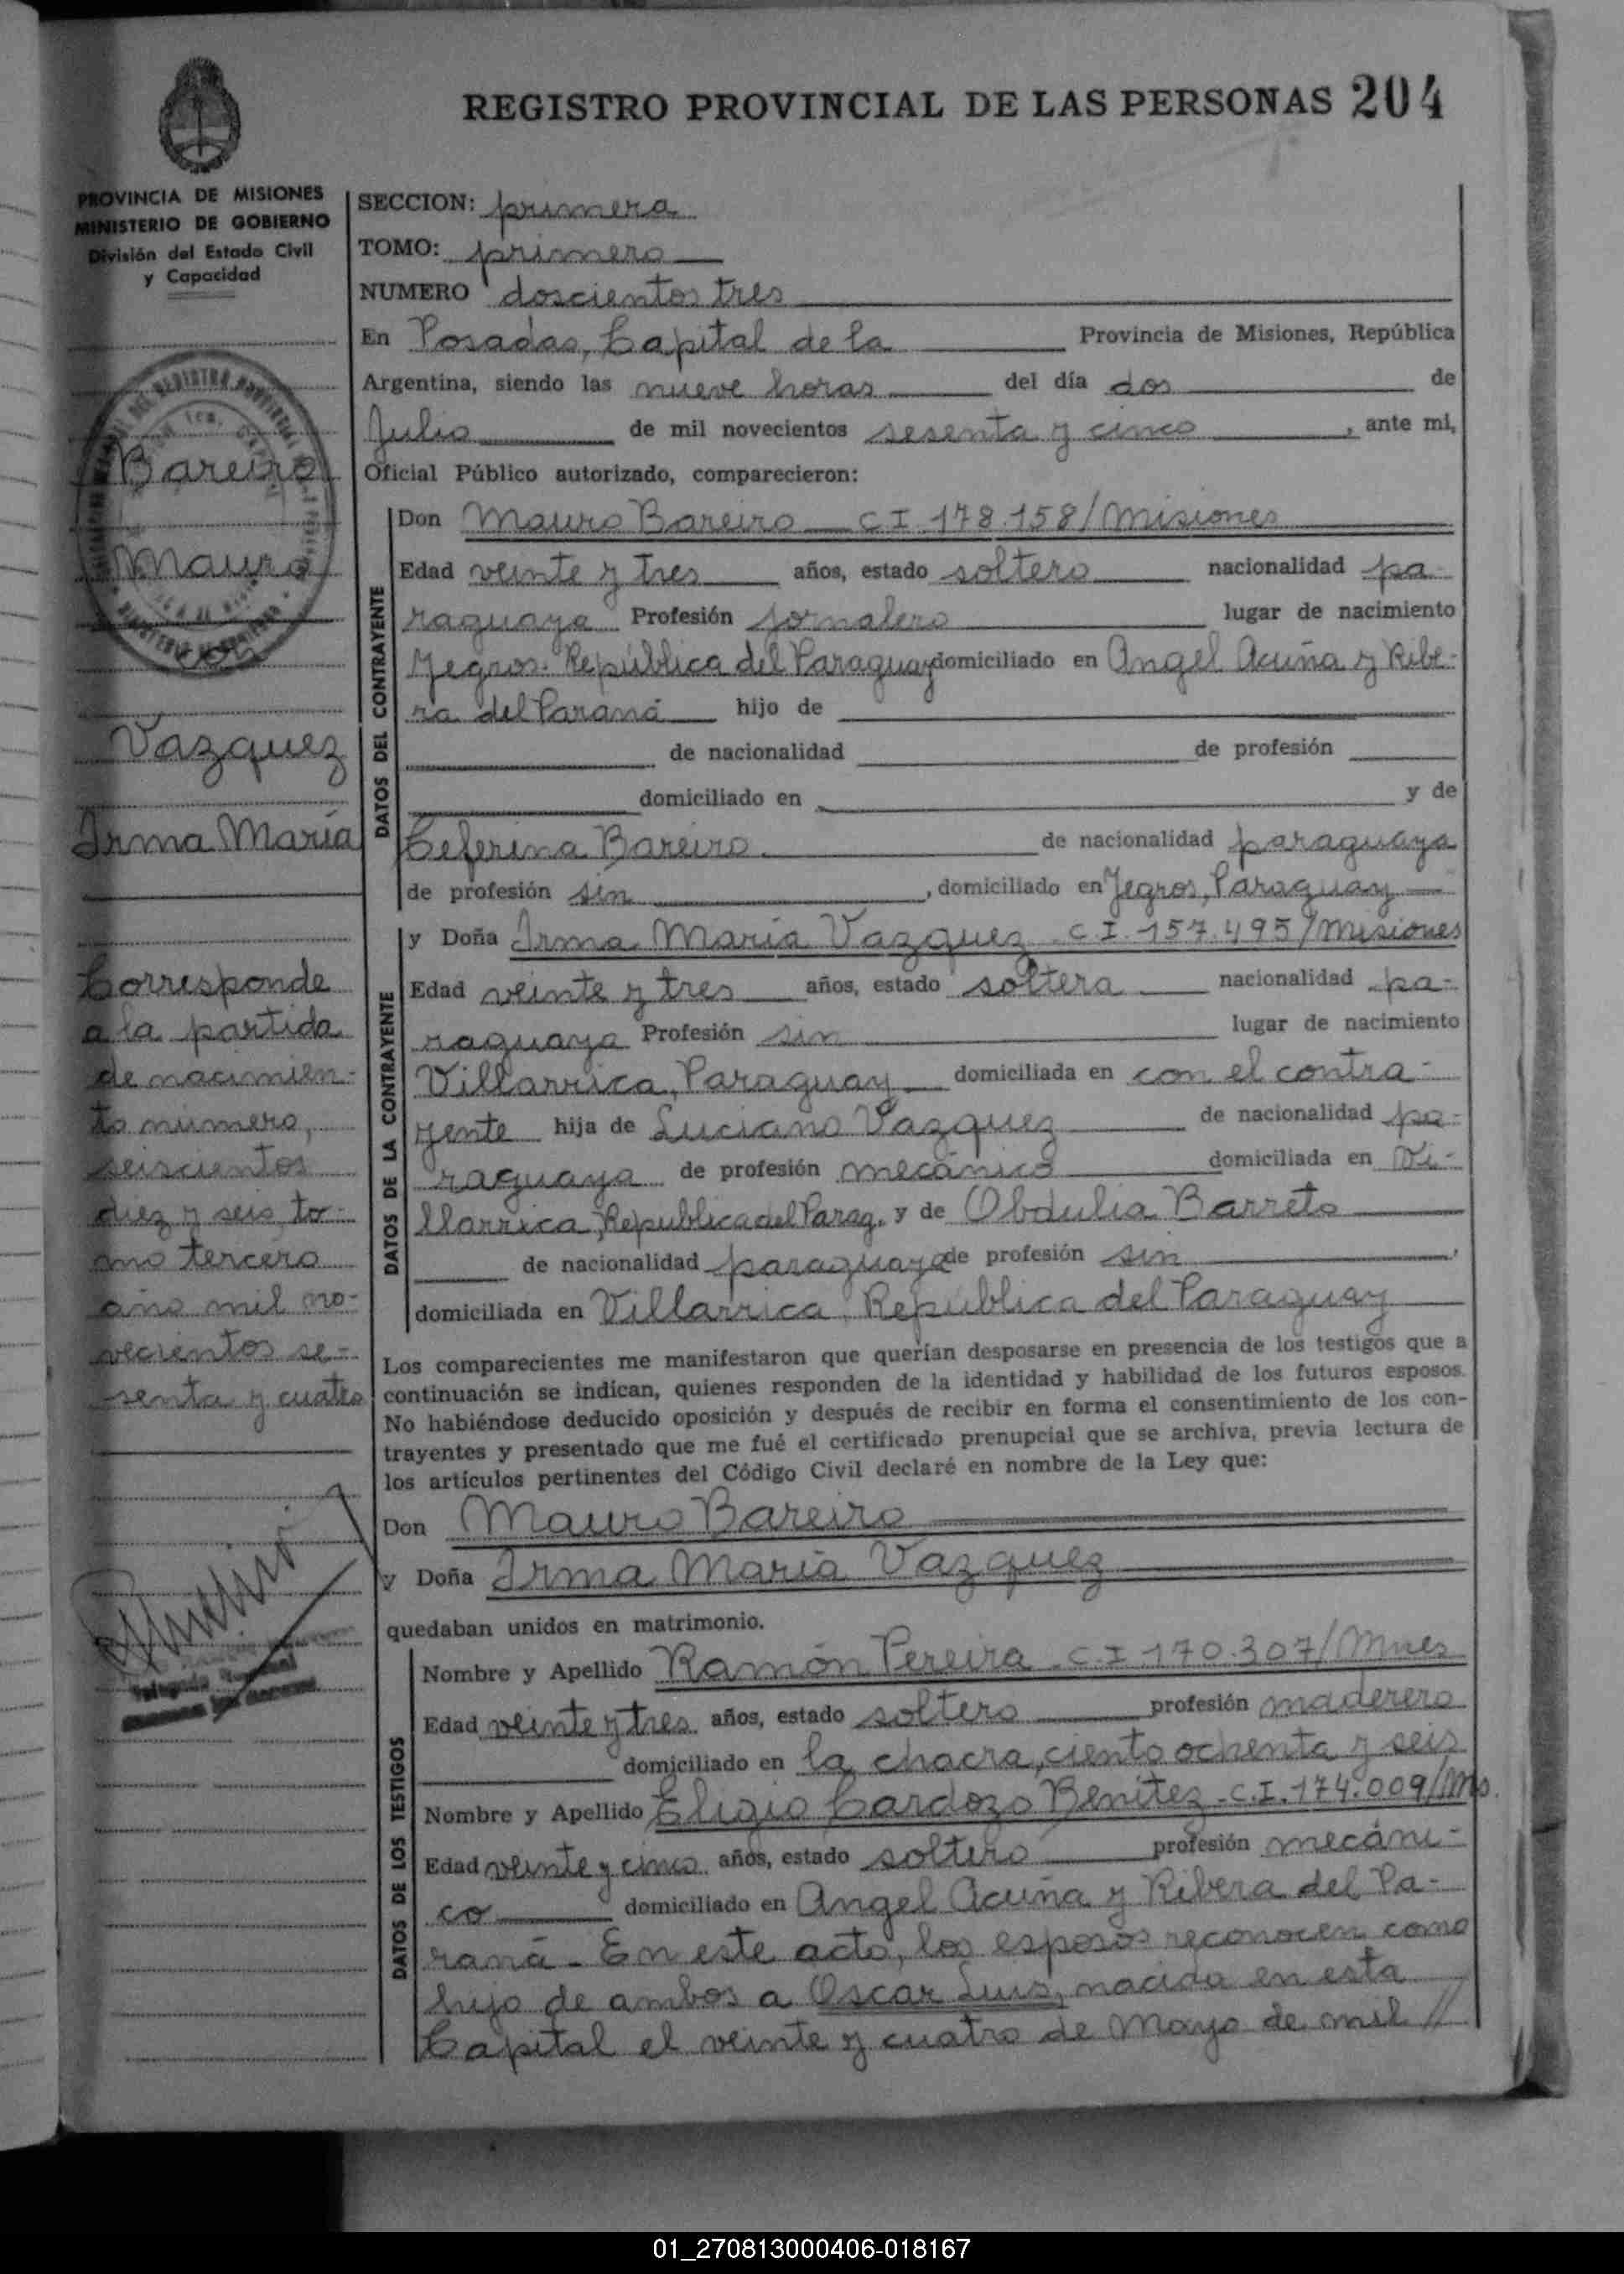 REGISTRO PROVINCIAL DE LAS PERSONAS 204
PROVINCIA DE MISIONES
MINISTERIO DE GOBIERNO
División del Estado Civil
y Capacidad
Bareiro
Mauro
con
Vazquez
Irma María
Corresponde
a la partida
de nacimien-
to número,
seiscientos
diez y seis, to-
mo tercero
año mil no-
vecientos se-
senta y cuatro
SECCION: primera
TOMO: primero
NUMERO doscientos tres
En Posadas, Capital de la Provincia de Misiones, República
Argentina, siendo las nueve horas del día dos de
Julio de mil novecientos sesenta y cinco, ante mi,
Oficial Público autorizado, comparecieron:
DATOS DEL CONTRAYENTE
Don Mauro Bareiro C.I. 178.158/Misiones
Edad veinte y tres años, estado soltero nacionalidad pa-
raguaya Profesión jornalero lugar de nacimiento
Yegros. República del Paraguay domiciliado en Angel Acuña y Ribe-
ra del Paraná hijo de
de nacionalidad de profesión
domiciliado en y de
Ceferina Bareiro de nacionalidad paraguaya
de profesión sin, domiciliado en Yegros, Paraguay
DATOS DE LA CONTRAYENTE
y Doña Irma María Vazquez C.I. 157.495/Misiones
Edad veinte y tres años, estado soltera nacionalidad pa-
raguaya Profesión sin lugar de nacimiento
Villarrica, Paraguay domiciliada en con el contra-
yente hija de Luciano Vazquez de nacionalidad pa-
raguaya de profesión mecánico domiciliada en Vi-
llarrica, Republica del Parag. y de Obdulia Barreto
de nacionalidad paraguaya de profesión sin,
domiciliada en Villarrica, República del Paraguay
Los comparecientes me manifestaron que querían desposarse en presencia de los testigos que a
continuación se indican, quienes responden de la identidad y habilidad de los futuros esposos.
No habiéndose deducido oposición y después de recibir en forma el consentimiento de los con-
trayentes y presentado que me fué el certificado prenupcial que se archiva, previa lectura de
los artículos pertinentes del Código Civil declaré en nombre de la Ley que:
Don Mauro Bareiro
y Doña Irma María Vazquez
quedaban unidos en matrimonio.
DATOS DE LOS TESTIGOS
Nombre y Apellido Ramón Pereira C.I 170.307/Mnes
Edad veinte y tres años, estado soltero profesión maderero
domiciliado en la chacra, ciento ochenta y seis
Nombre y Apellido Eligio Cardozo Benítez C.I. 174.009/Ms.
Edad veinte y cinco años, estado soltero profesión mecáni-
co domiciliado en Angel Acuña y Ribera del Pa-
raná - En este acto, los esposos reconocen como
hijo de ambos a Oscar Luis, nacido en esta
Capital el veinte y cuatro de Mayo de mil //
01_270813000406-018167